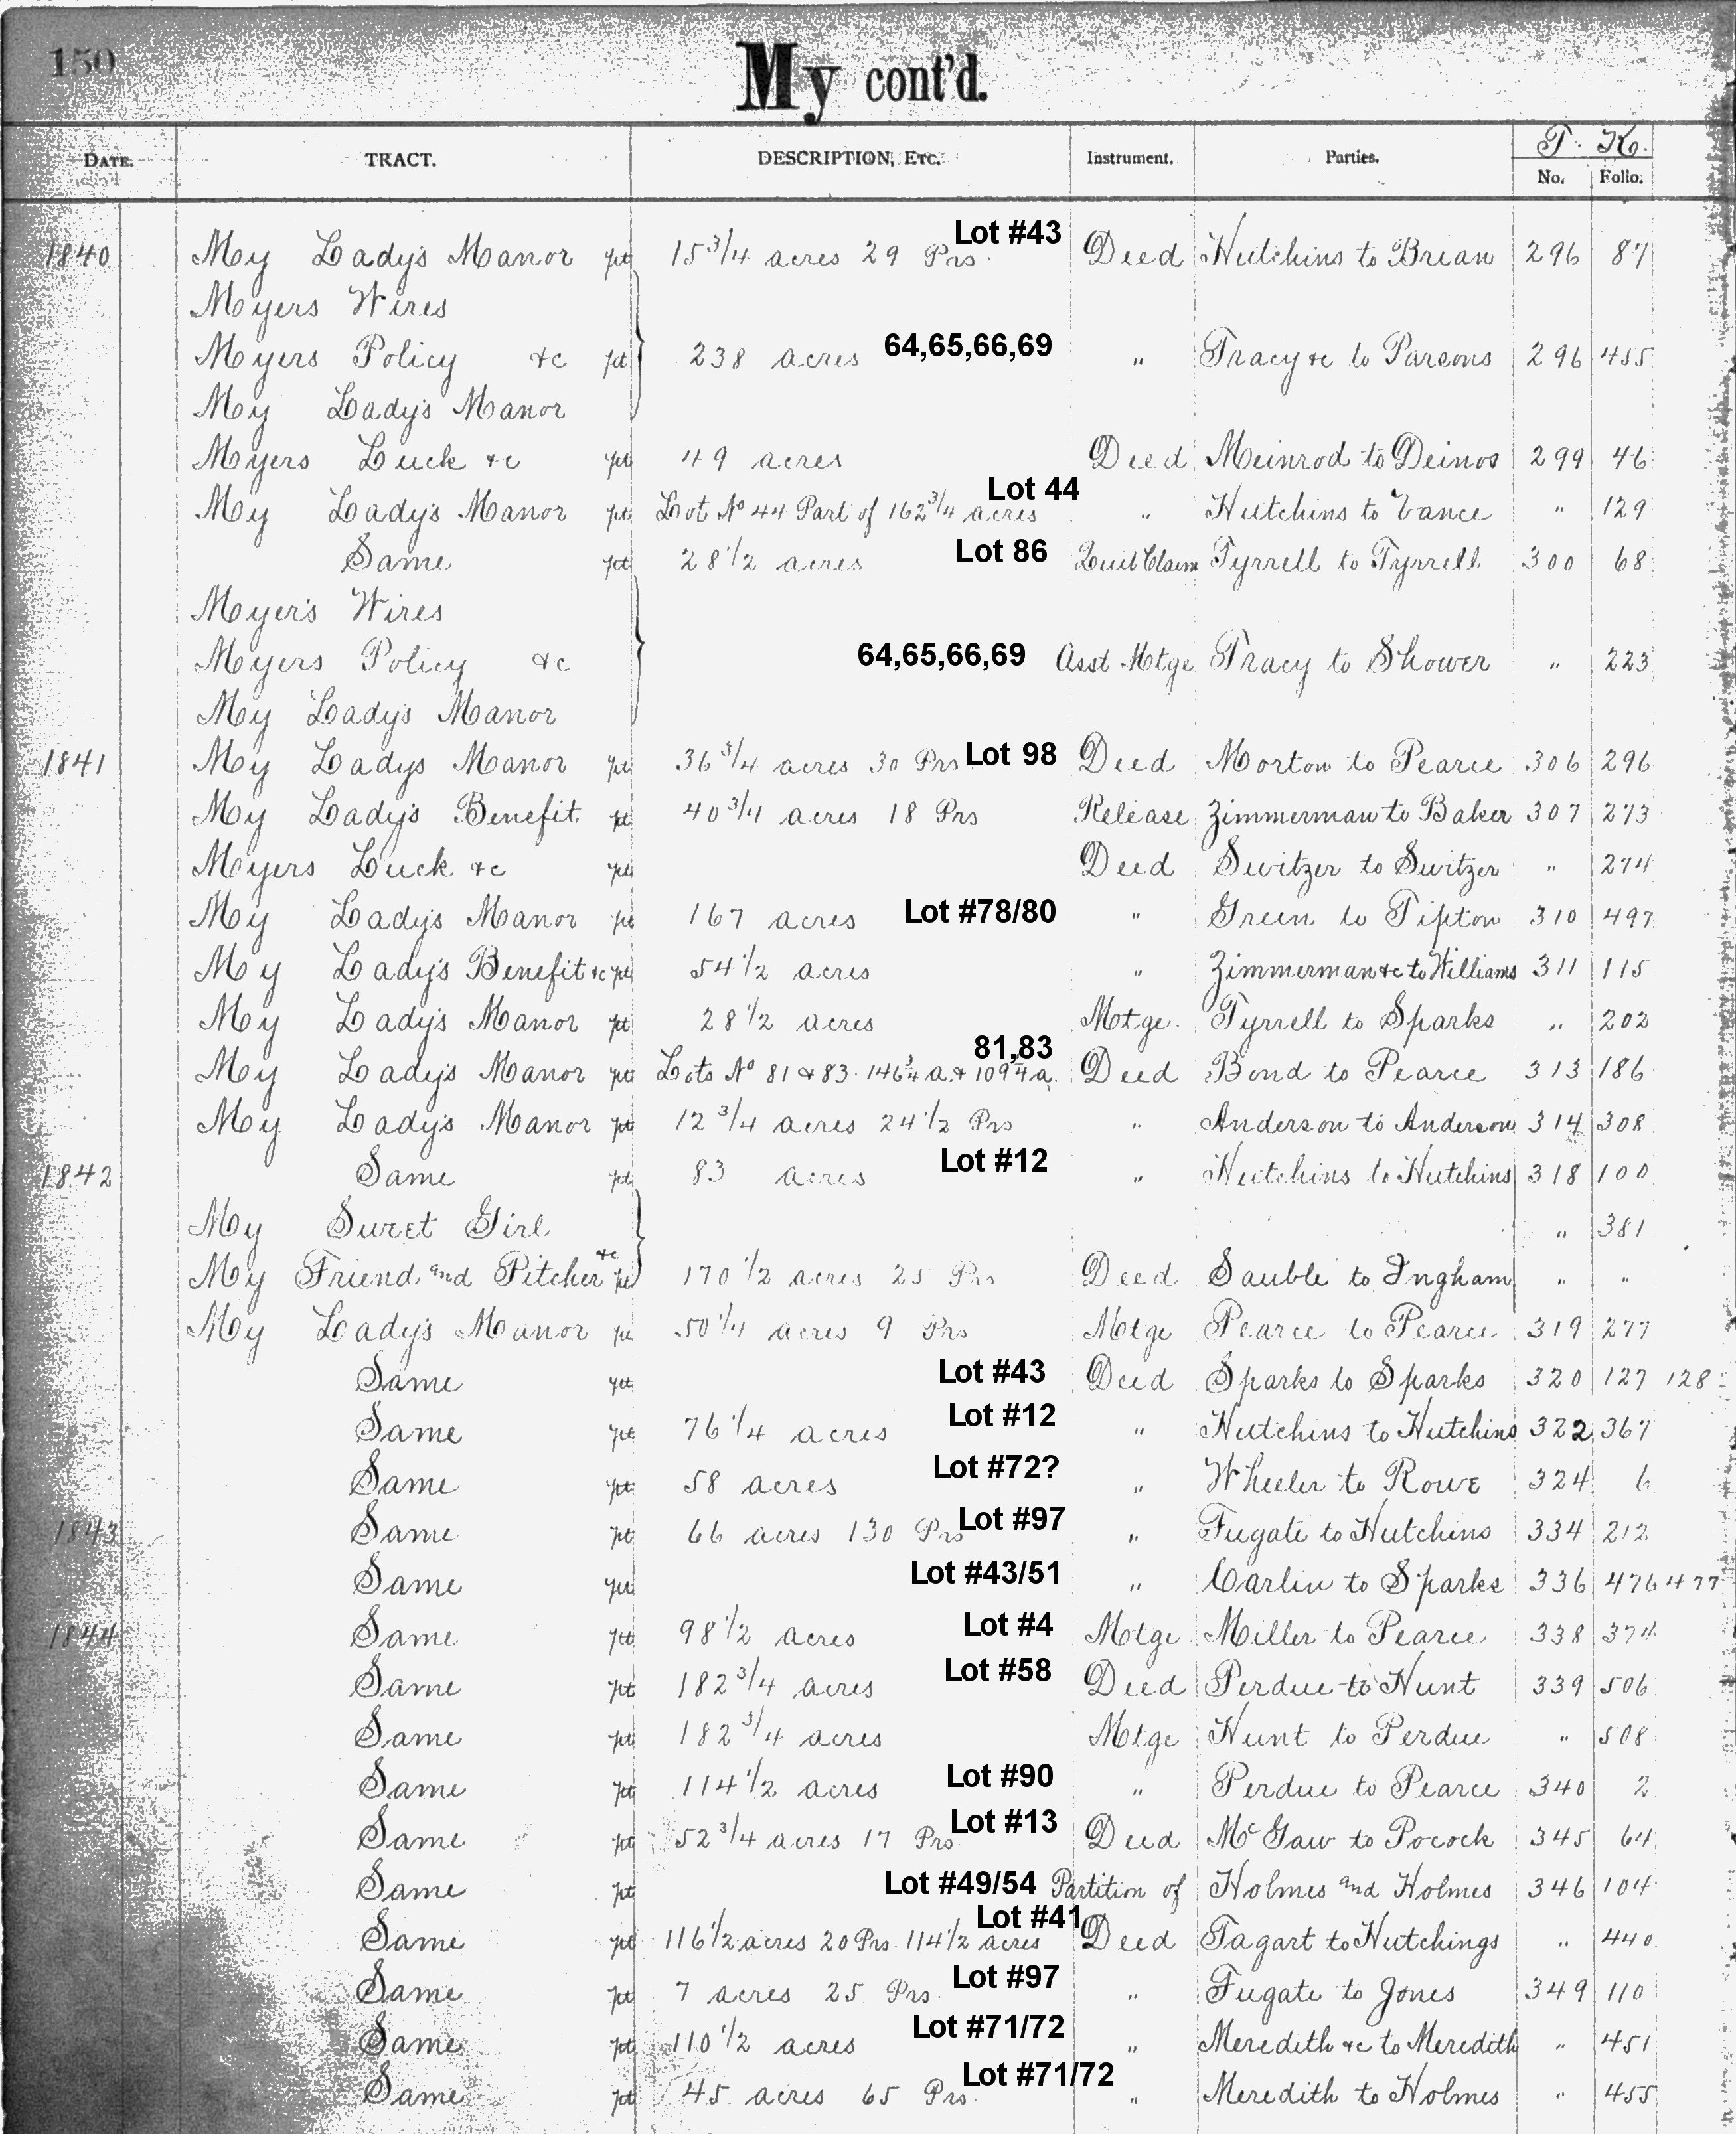 150
My cont'd.
T. K.
DATE. TRACT. DESCRIPTION, ETC. Instrument. Parties. No. Folio.
Lot #43
1840 My Lady's Manor pt 15 3/4 acres 29 Prs. Deed Hutchins to Brian 296 87
Myers Wires
Myers Policy &c pt 238 acres 64,65,66,69 " Tracy &c to Parsons 296 455
My Lady's Manor
Myers Luck &c pt 49 acres Deed Meinrod to Deinos 299 46
Lot 44
My Lady's Manor pt Lot No 44 Part of 162 3/4 acres " Hutchins to Vance " 129
Same pt 28 1/2 acres Lot 86 Quit Claim Tyrrell to Tyrrell 300 68
Myer's Wires
Myers Policy &c 64,65,66,69 Asst Mtge Tracy to Shower " 223
My Lady's Manor
1841 My Ladys Manor pt 36 3/4 acres 30 Prs Lot 98 Deed Morton to Pearce 306 296
My Lady's Benefit pt 40 3/4 acres 18 Prs Release Zimmerman to Baker 307 273
Myers Luck &c pt Deed Switzer to Switzer " 274
My Lady's Manor pt 167 acres Lot #78/80 " Green to Tipton 310 497
My Lady's Benefit &c pt 54 1/2 acres " Zimmerman &c to Williams 311 115
My Lady's Manor pt 28 1/2 acres Motge. Tyrrell to Sparks " 202
81,83
My Lady's Manor pt Lots No 81 & 83 146 3/4 a. & 109 1/4 a. Deed Bond to Pearce 313 186
My Lady's Manor pt 12 3/4 acres 24 1/2 Prs " Anderson to Anderson 314 308
1842 Same pt 83 acres Lot #12 " Hutchins to Hutchins 318 100
My Sweet Girl " 381
My Friend and Pitcher &c pt 170 1/2 acres 25 Prs Deed Sauble to Ingham " "
My Lady's Manor pt 50 1/4 acres 9 Prs Motge Pearce to Pearce 319 277
Same pt Lot #43 Deed Sparks to Sparks 320 127 128
Same pt 76 1/4 acres Lot #12 " Hutchins to Hutchins 322 367
Same pt 58 acres Lot #72? " Wheeler to Rowe 324 6
1843 Same pt 66 acres 130 Prs Lot #97 " Fugate to Hutchins 334 212
Same pt Lot #43/51 " Carlin to Sparks 336 476 477
1844 Same pt 98 1/2 acres Lot #4 Motge. Miller to Pearce 338 374
Same pt 182 3/4 acres Lot #58 Deed Perdue to Hunt 339 506
Same pt 182 3/4 acres Motge Hunt to Perdue " 508
Same pt 114 1/2 acres Lot #90 " Perdue to Pearce 340 2
Same pt 52 3/4 acres 17 Prs Lot #13 Deed McGaw to Pocock 345 64
Same pt Lot #49/54 Partition of Holmes and Holmes 346 104
Lot #41
Same pt 116 1/2 acres 20 Prs 114 1/2 acres Deed Tagart to Hutchings " 440
Same pt 7 acres 25 Prs. Lot #97 " Fugate to Jones 349 110
Same pt 110 1/2 acres Lot #71/72 " Meredith &c to Meredith " 451
Same pt 45 acres 65 Prs. Lot #71/72 " Meredith to Holmes " 455